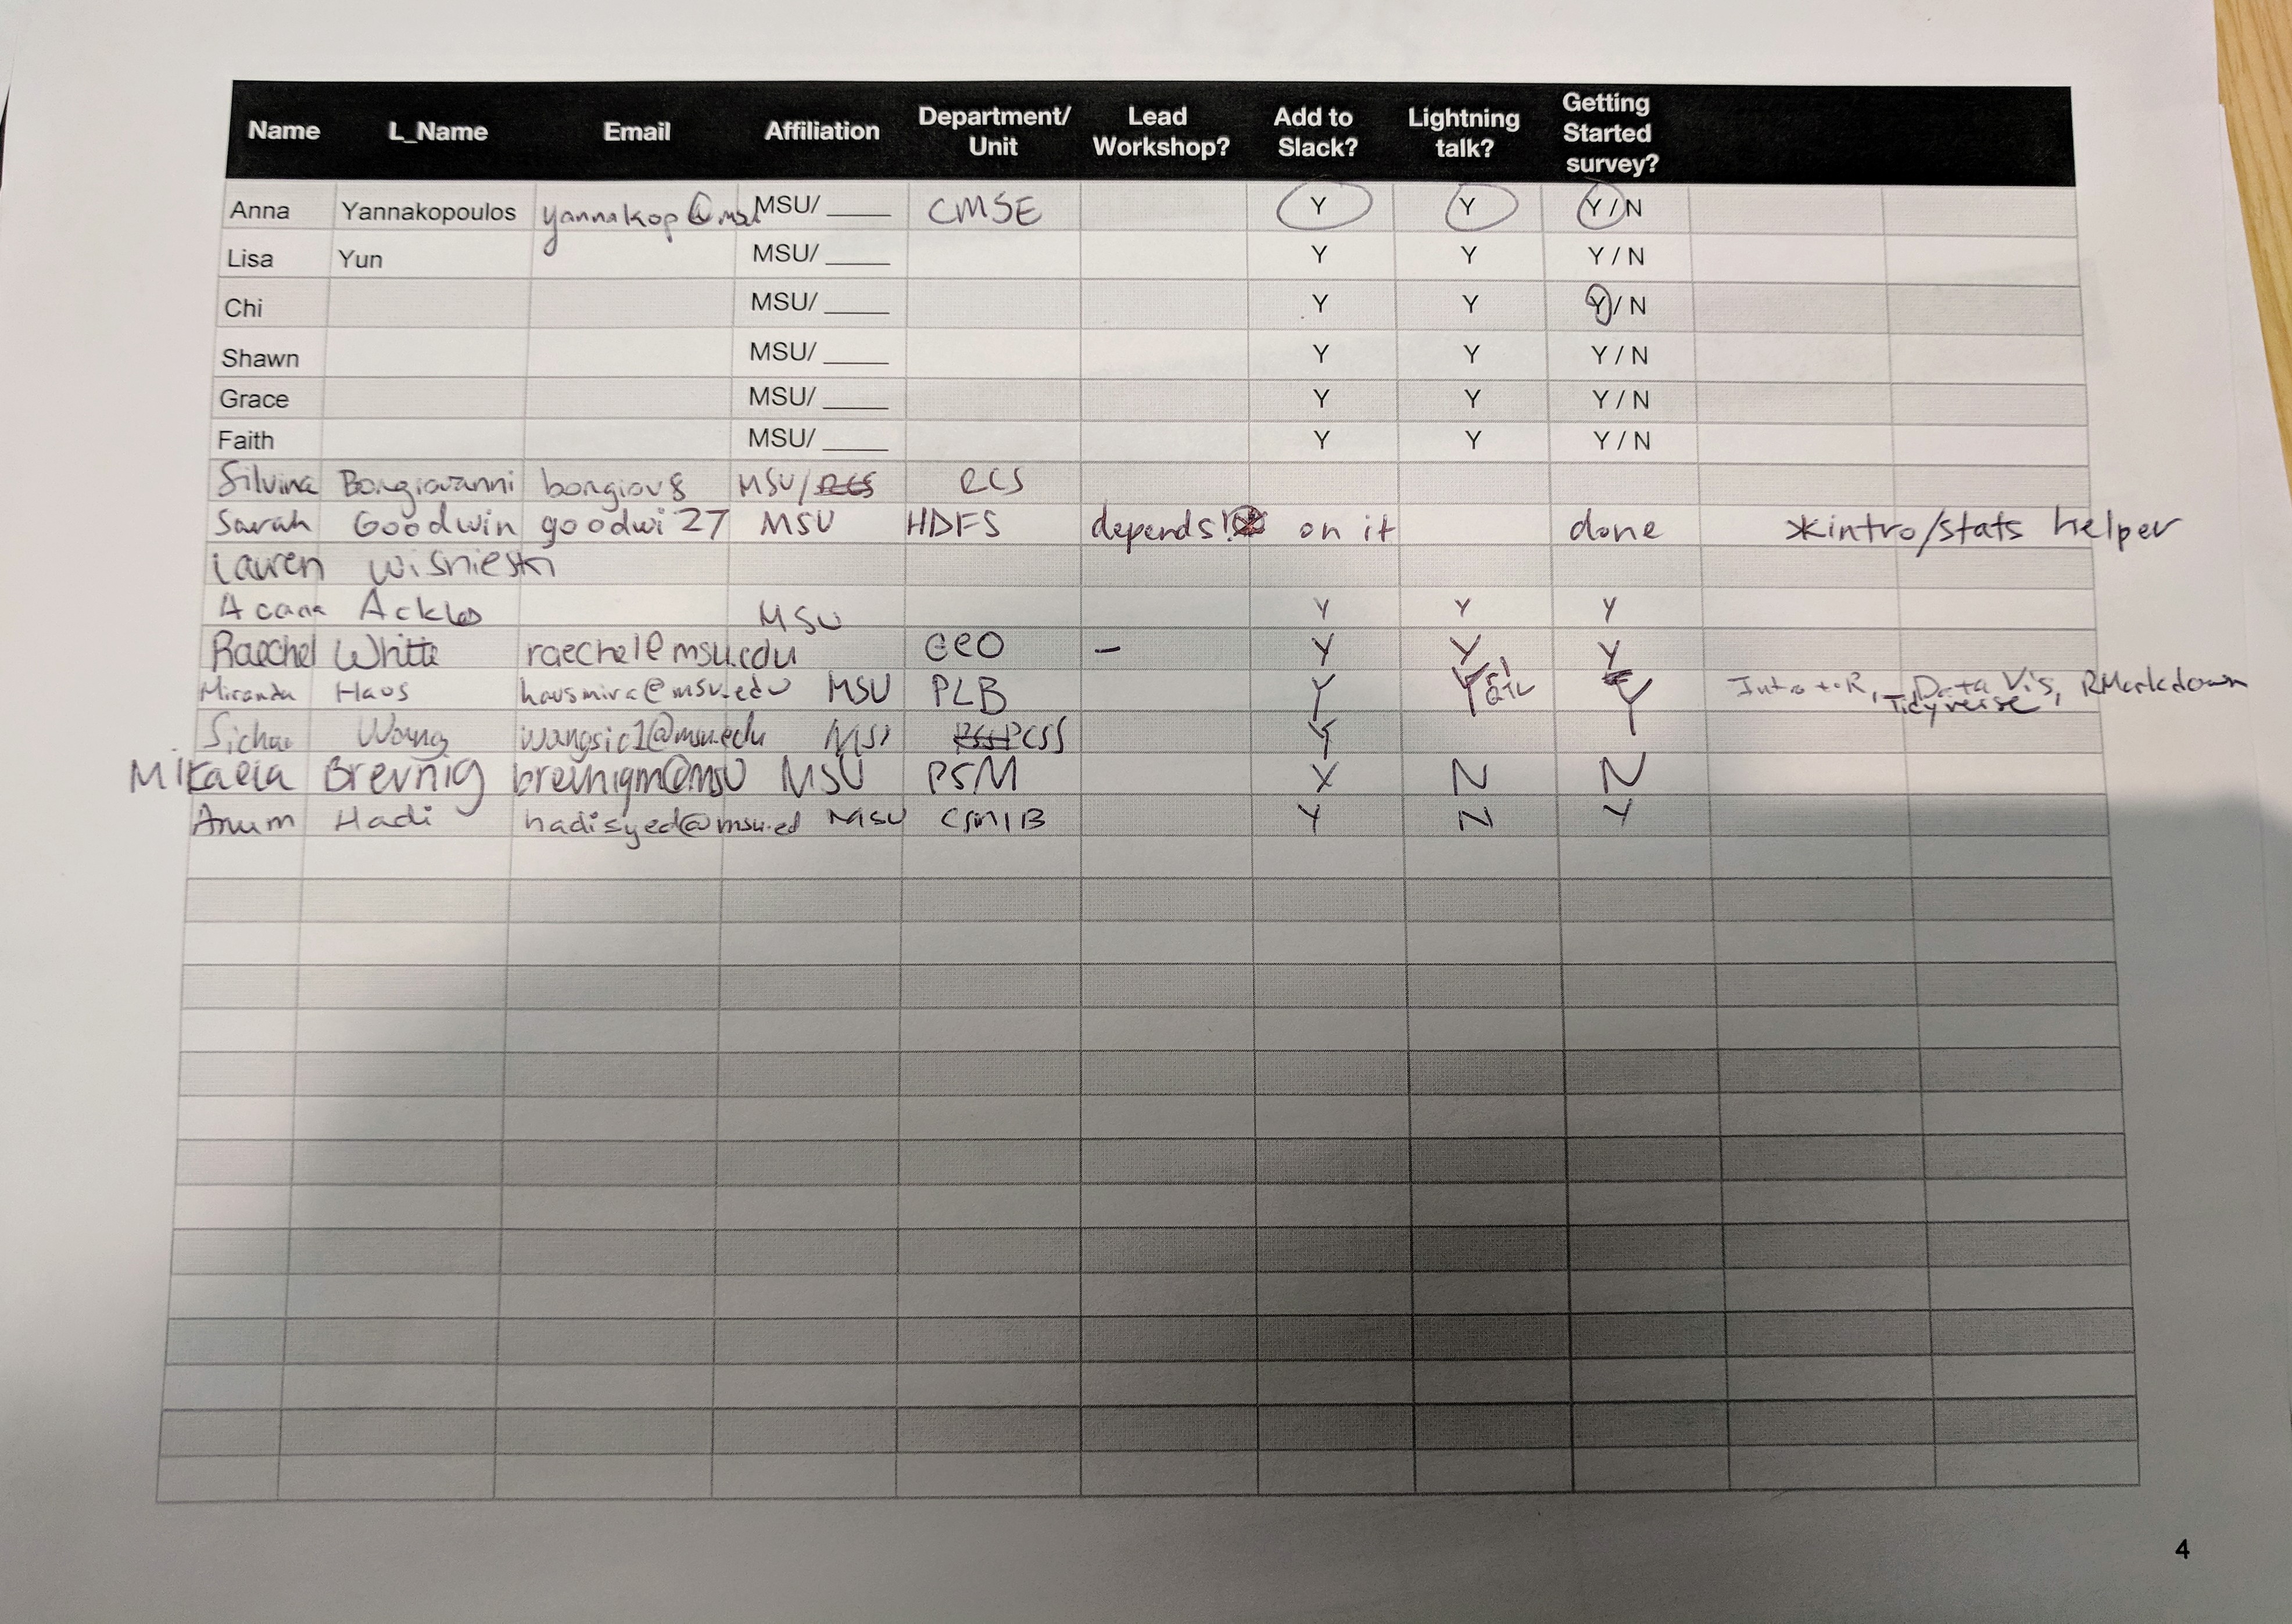 Name L_Name Email Affiliation Department/ Unit Lead Workshop? Add to Slack? Lightning talk? Getting Started survey?
Anna Yannakopoulos yannakop@msu MSU/ _____ CMSE Y Y Y / N
Lisa Yun MSU/ _____ Y Y Y / N
Chi MSU/ _____ Y Y Y / N
Shawn MSU/ _____ Y Y Y / N
Grace MSU/ _____ Y Y Y / N
Faith MSU/ _____ Y Y Y / N
Silvina Bongiovanni bongiov8 MSU/ RCS
Sarah Goodwin goodwi27 MSU HDFS depends! on it done *intro/stats helper
Lauren Wisnieski
Acacia Ackles MSU Y Y Y
Raechel White raechel@msu.edu GEO – Y Y Y
Miranda Haus hausmira@msu.edu MSU PLB Y Y QTL Y Intro to R, Data Vis, RMarkdown
Tidyverse
Sichao Wang wangsic1@msu.edu MSU PCSS Y
Mikaela Breunig breunigm@msu MSU PSM X N N
Anum Hadi hadisyed@msu.ed MSU CSMIB Y N Y
4